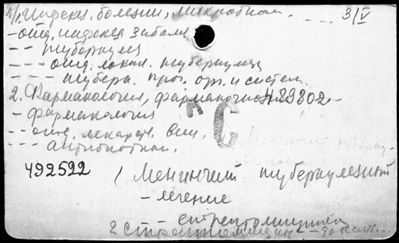 1, Индекс. болезни, микробная. 3/V
- общ. индекся заболев.
- - туберкулез
- - - общ. локал. туберкулеза
- - - - туберк. проч. орг. и систем.
2. Фармакология, фармакогно 429302 -
- фармакология
- - общ. лекарств. вещ.
- - - антибиотики.
С
492522
1 Менингит туберкулезный
- лечение
- - стрептомицин
2 Стрептомицин -